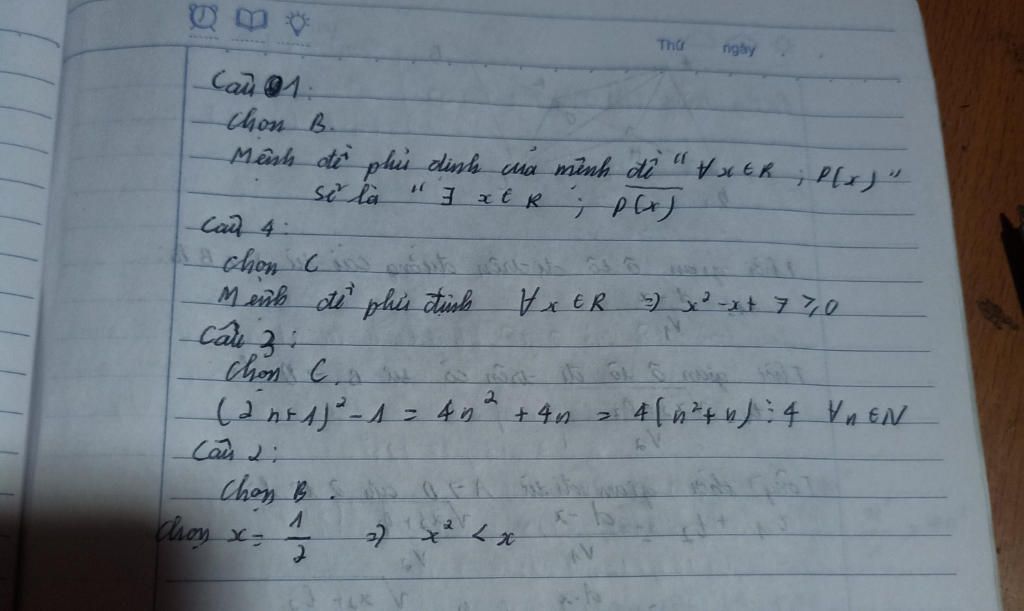 Thứ ngày
Câu 1:
Chọn B.
Mệnh đề phủ định của mệnh đề "∀x∈R ; P(x)"
sẽ là "∃ x∈R ; P̅(̅x̅)̅
Câu 4:
Chọn C
Mệnh đề phủ định ∀x∈R => x²-x+7≥0
Câu 3:
Chọn C.
(2n+1)²-1 = 4n²+4n = 4(n²+n)⋮4 ∀n∈N
Câu 2:
Chọn B.
Chọn x= 1/2 => x² < x